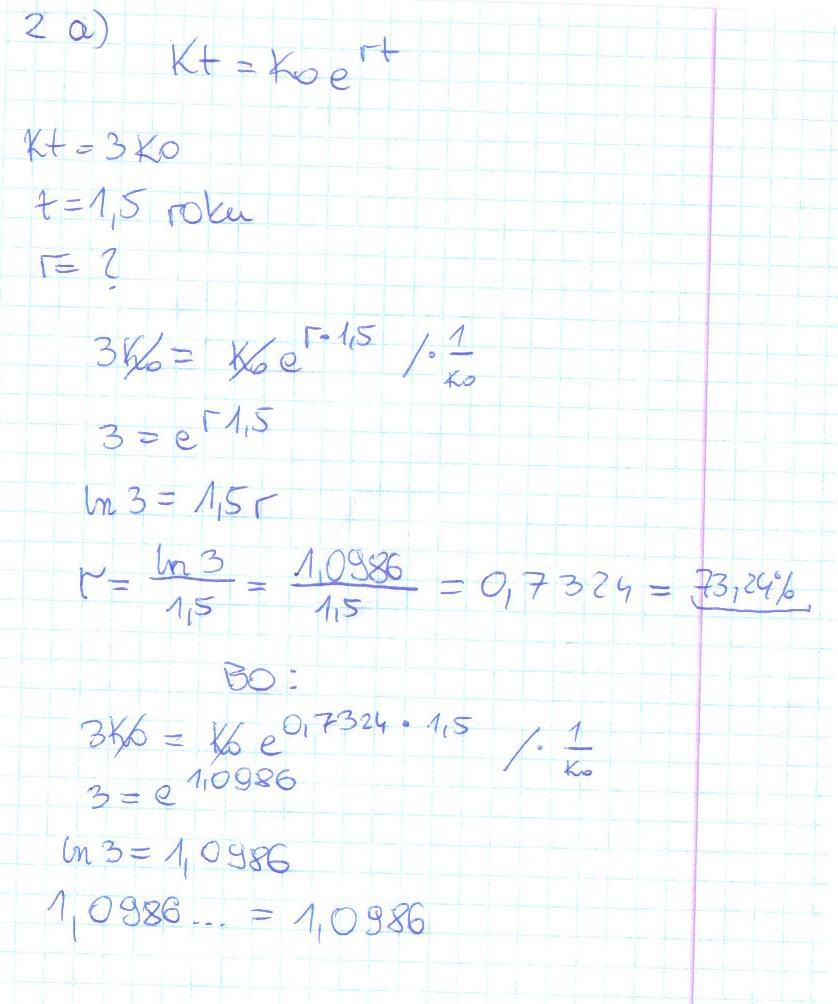 2 a)
Kt = Ko e^rt
Kt = 3 Ko
t = 1,5 roku
r = ?
3Ko = Ko e^r·1,5 /· 1/Ko
3 = e^r1,5
ln 3 = 1,5 r
r = ln 3/1,5 = 1,0986/1,5 = 0,7324 = 73,24%
BO:
3Ko = Ko e^0,7324 · 1,5 /· 1/Ko
3 = e^1,0986
ln 3 = 1,0986
1,0986... = 1,0986